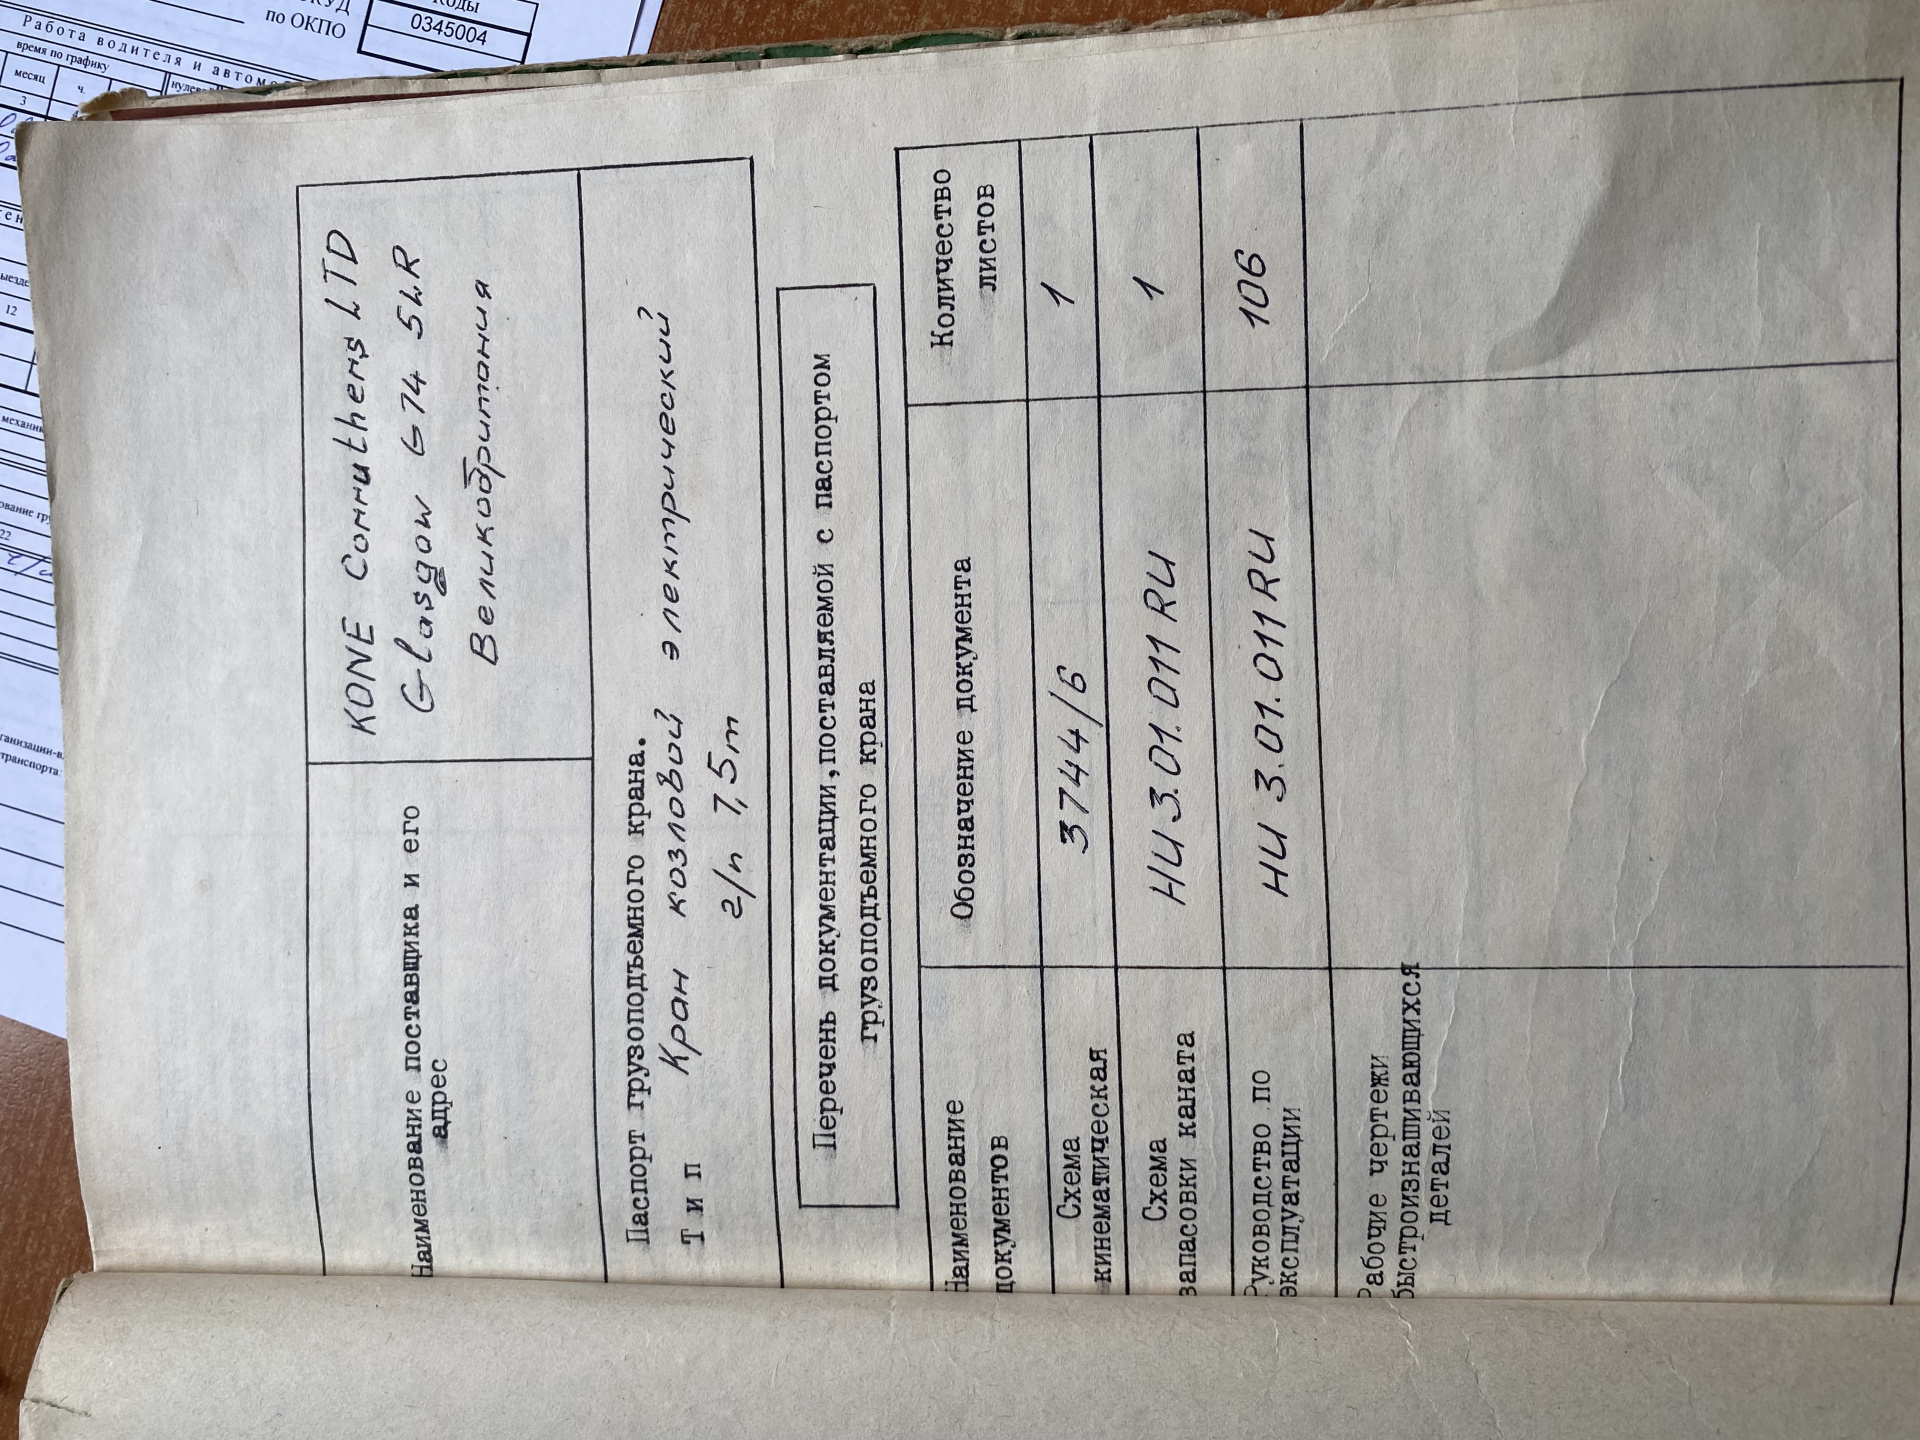 Наименование поставщика и его
адрес
KONE Corruthers LTD
Glasgow G74 5LR
Великобритания
Паспорт грузоподъемного крана.
Тип Кран козловой электрический
г/п 7,5т
Перечень документации,поставляемой с паспортом
грузоподъемного крана
Наименование
документов
Обозначение документа
Количество
листов
Схема
кинематическая
3744/6
1
Схема
запасовки каната
НИ 3.01.011 RU
1
Руководство по
эксплуатации
НИ 3.01.011 RU
106
Рабочие чертежи
быстроизнашивающихся
деталей
по ОКПО
0345004
Работа водителя и автомо
время по графику
месяц
ч.
3
12
22
транспорта: